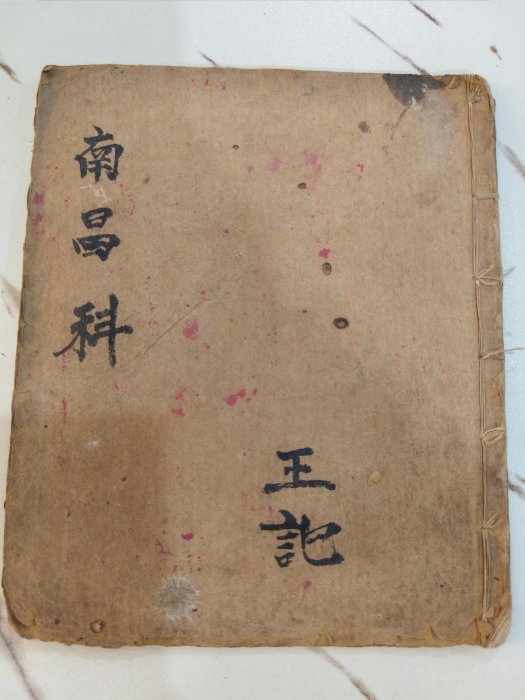 南昌科
王記